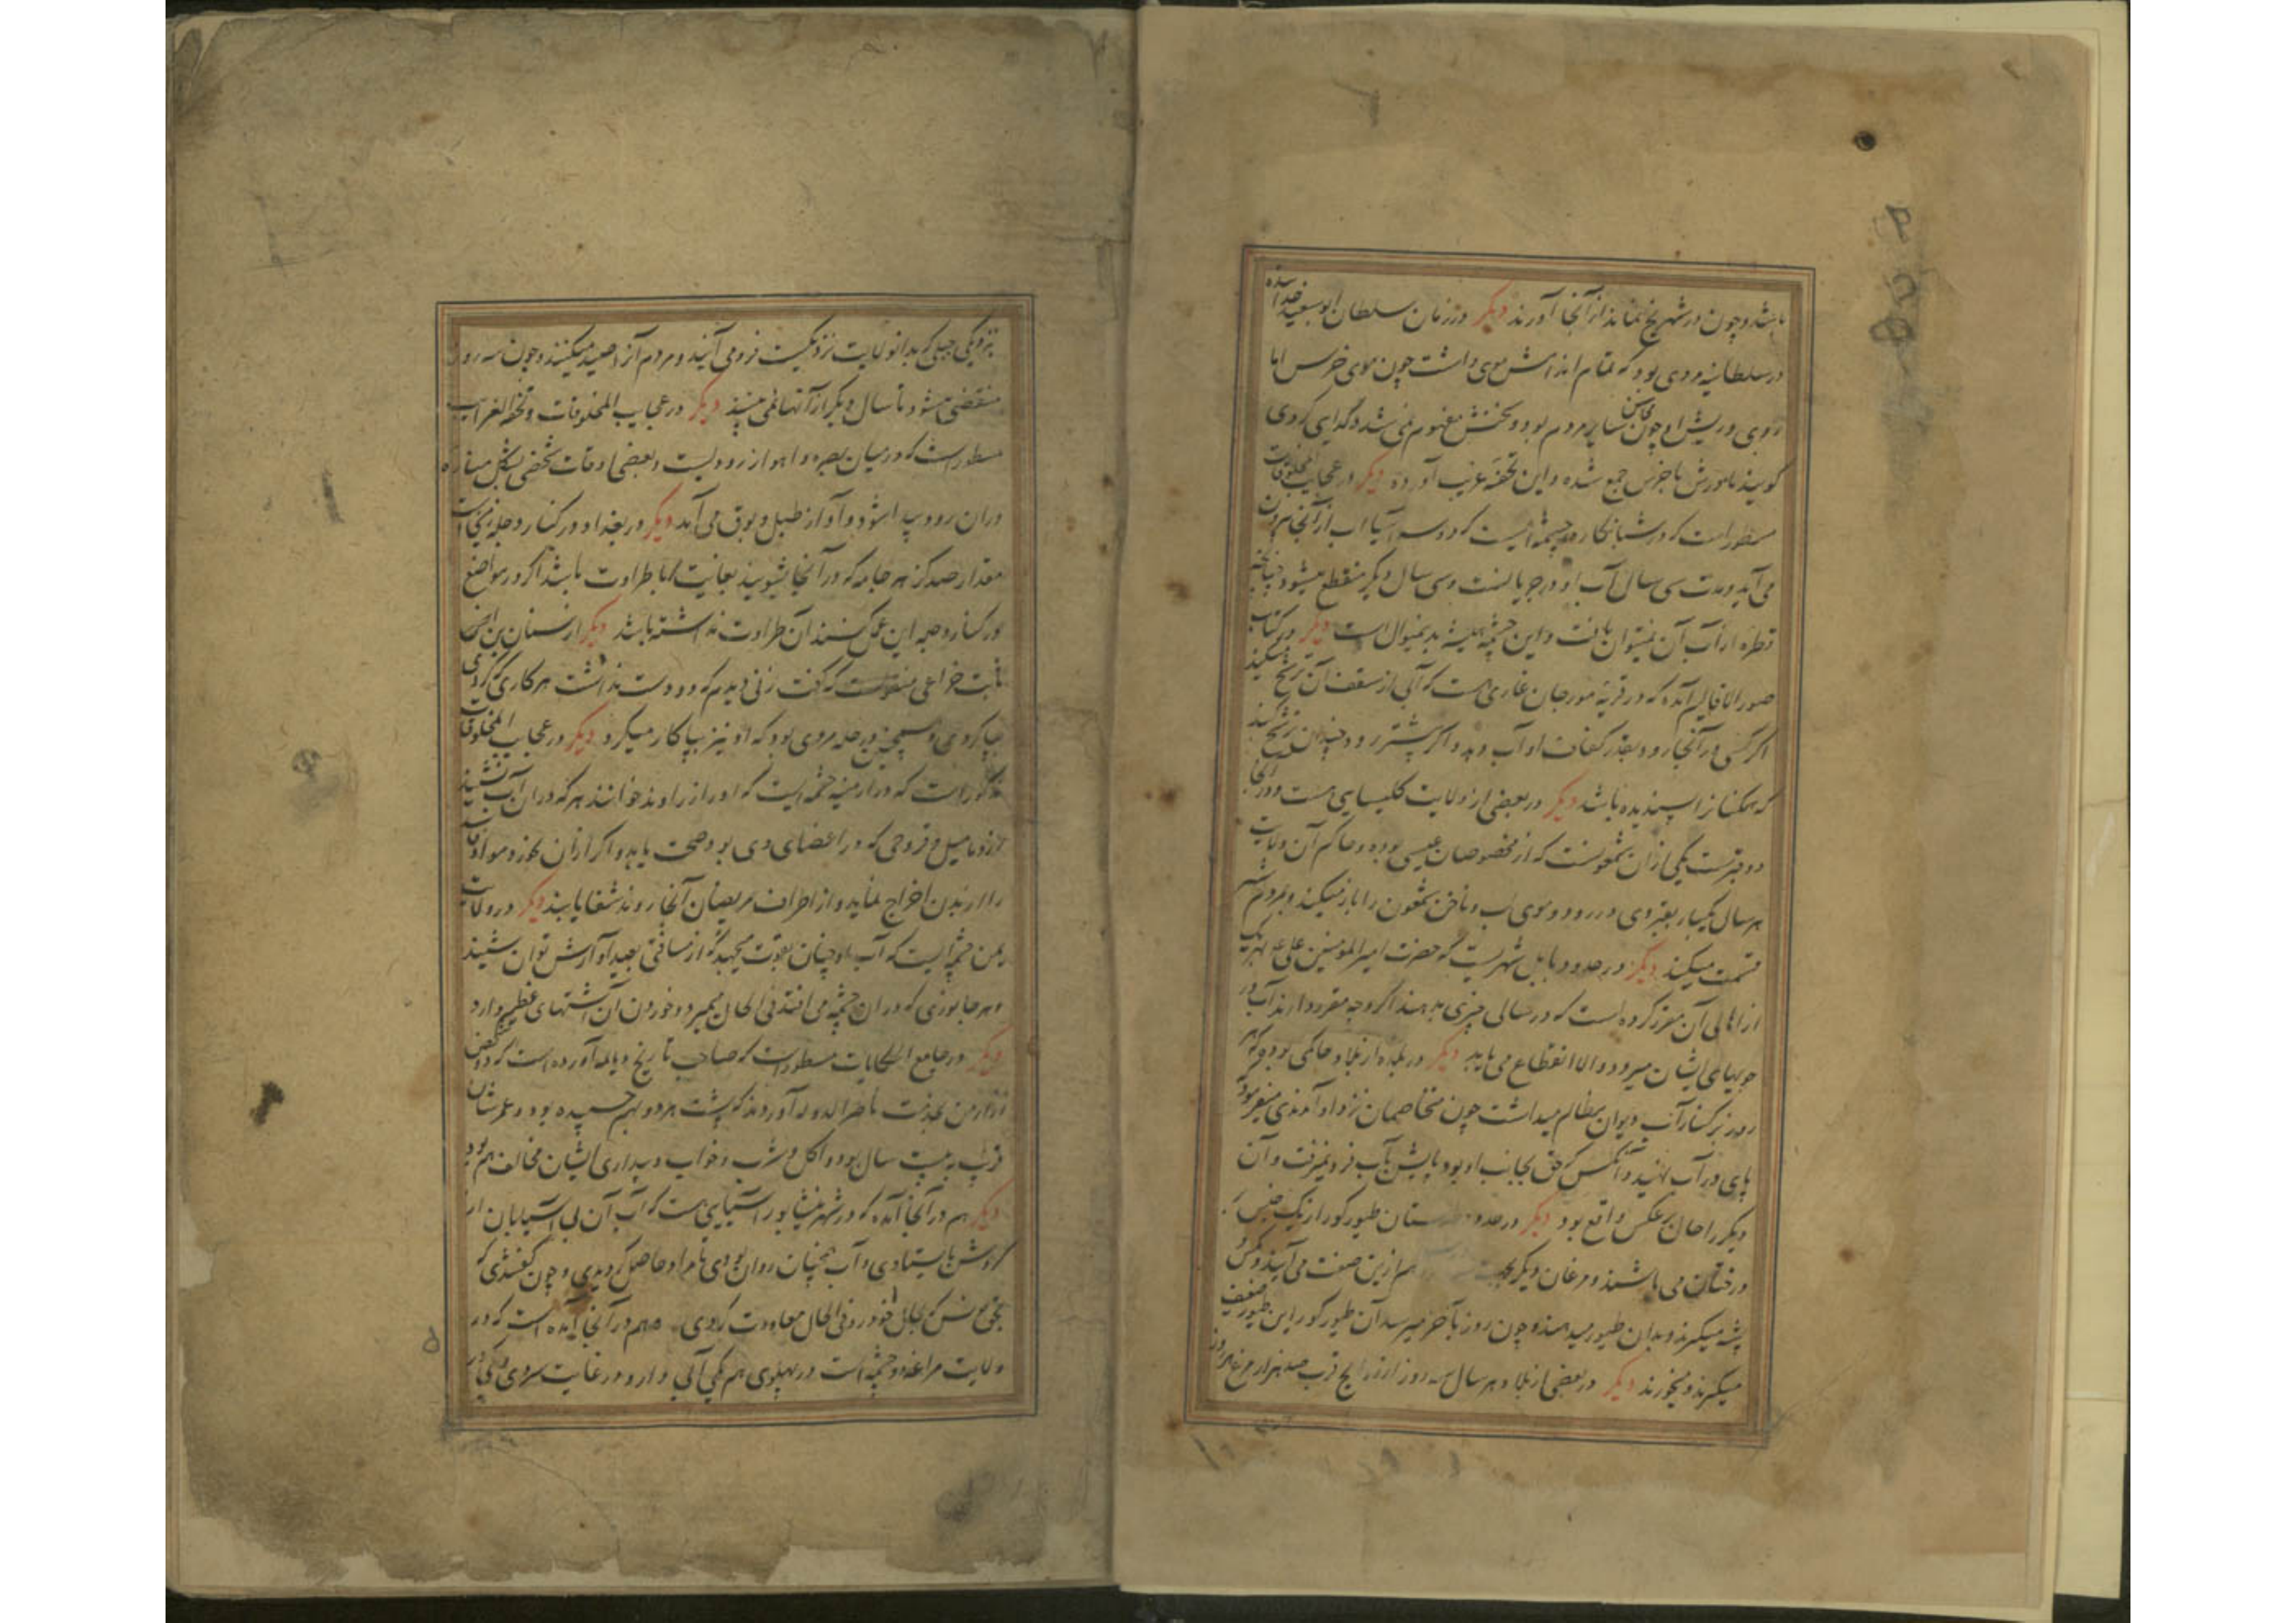 باشد و چون در شهر یخ نماند از آنجا آورند دیگر در زمان سلطان ابوسعید خدابنده
در سلطانیه مردی بود که تمام اندامش موی داشت چون موی خرس اما
روی و ریش او چون محاسن سایر مردم بود و سخنش مفهوم نمی شد و گدایی کردی
گویند مادرش با خرس جمع شده و این تحفه غریب آورده دیگر در عجایب المخلوقات
مسطور است که در شبانکاره چشمه ایست که دو سه آسیا آب از آنجا بیرون
می آید و مدت سی سال آب او در جریانست و سی سال دیگر منقطع میشود چنانچه
قطره از آب آن نمیتوان یافت و این چشمه همیشه بدینمنوال است دیگر در کتاب
صور الاقالیم آمده که در قریه مورجان غاری هست که آبی از سقف آن ترشح میکند
اگر کسی در آنجا رود بقدر کفاف او آب دهد و اگر بیشتر رود چندان ترشح کند
که همکنانرا پسندیده باشد دیگر در بعضی از ولایت کلیسیایی هست و در آنجا
دو قبرست یکی ازان شمعونست که از مخصوصان عیسی بوده و حاکم آن ولایت
هر سال یکبار بقبر وی در رود و موی لب و ناخن شمعون را باز میکند و بمردم
قسمت میکند دیگر در حدود بابل شهریست که حضرت امیرالمومنین علی بهر یک
از اهالی آن مقرر کرده است که در سالی چیزی بدهند اگر وجه مقرر دارند آب در
جویهای ایشان میرود و الا انقطاع می یابد دیگر در بلده از بلاد حاکمی بوده که هر
روز بر کنار آب دیوان مظالم میداشت چون متخاصمان نزد او آمدندی میفرمود
پای در آب نهید و آنکس که حق بجانب او بود پایش بآب فرو نمیرفت و آن
دیگر را حال برعکس واقع بود دیگر در حدود طیور کور از یک جنس بر
درختان می باشند و مرغان دیگر هم ازین صنف می آیند و مکس
پشه میگیرند و بدان طیور میدهند و چون روز بآخر میرسد آن طیور کور این طیور ضعیف
میگیرند و میخورند دیگر در بعضی از بلاد هر سال سه روز قریب صد هزار مرغ هر روز
بنزدیکی جبلی که بدانولایت نزدیکست فرو می آیند و مردم آنرا صید میکنند و چون سه روز
منقضی میشود تا سال دیگر از آنها نمی بینند دیگر در عجایب المخلوقات و تحفة الغرایب
مسطور است که در میان بصره و اهواز رودیست و بعضی اوقات شخصی بشکل مناره
دران رود پیدا شود و آواز طبل و بوق می آید دیگر در بغداد در کنار دجله
مقدار صد گز هر جامه که در آنجا بشویند بغایت با طراوت باشد اگر در مواضع
در کنار دجله این عمل کنند آن طراوت نداشته باشد دیگر از سنان بن
ثابت خزاعی منقولست که گفت زنی دیدم که دو دست نداشت هر کاری که کردی
بپا کردی و همچنین در حله مردی بود که او نیز بپا کار میکرد دیگر در عجایب المخلوقات
مذکور است که در ارمنیه چشمه ایست که او را زراوند خوانند هر که دران آب نشیند
از دمامیل و قروحی که در اعضای وی بود صحت یابد و اگر ازان خورد مواد فاسد
را از بدن اخراج نماید و از اطراف مریضان آنجا روند شفا یابند دیگر در ولایت
یمن چشمه ایست که آب او چنان بقوت میجهد که از مسافتی بعید آوازش توان شنید
و هر جانوری که دران چشمه می افتد فی الحال بمیرد و خوردن آن اشتهای عظیم دارد
دیگر در جامع الحکایات مسطور است که صاحب تاریخ دیالمه آورده است که دو شخص
از ارمن بخدمت ناصرالدوله آوردند که پشت هر دو بهم چسپیده بود و عمرشان
قریب به بیست سال بود و اکل و شرب و خواب و بیداری ایشان مخالف هم بود
دیگر هم در آنجا آمده که در شهر نیشابور آسیایی هست که آب آن بی آسیابان از
گردش باستادی و آب همچنان روان بودی تا مراد حاصل گردیدی و چون گفتندی که
بحق یونس که بحال خود رو فی الحال معاودت کردی. هم در آنجا آمده است که در
ولایت مراغه دو چشمه است در پهلوی هم یکی آبی دارد در غایت سردی و یکی در